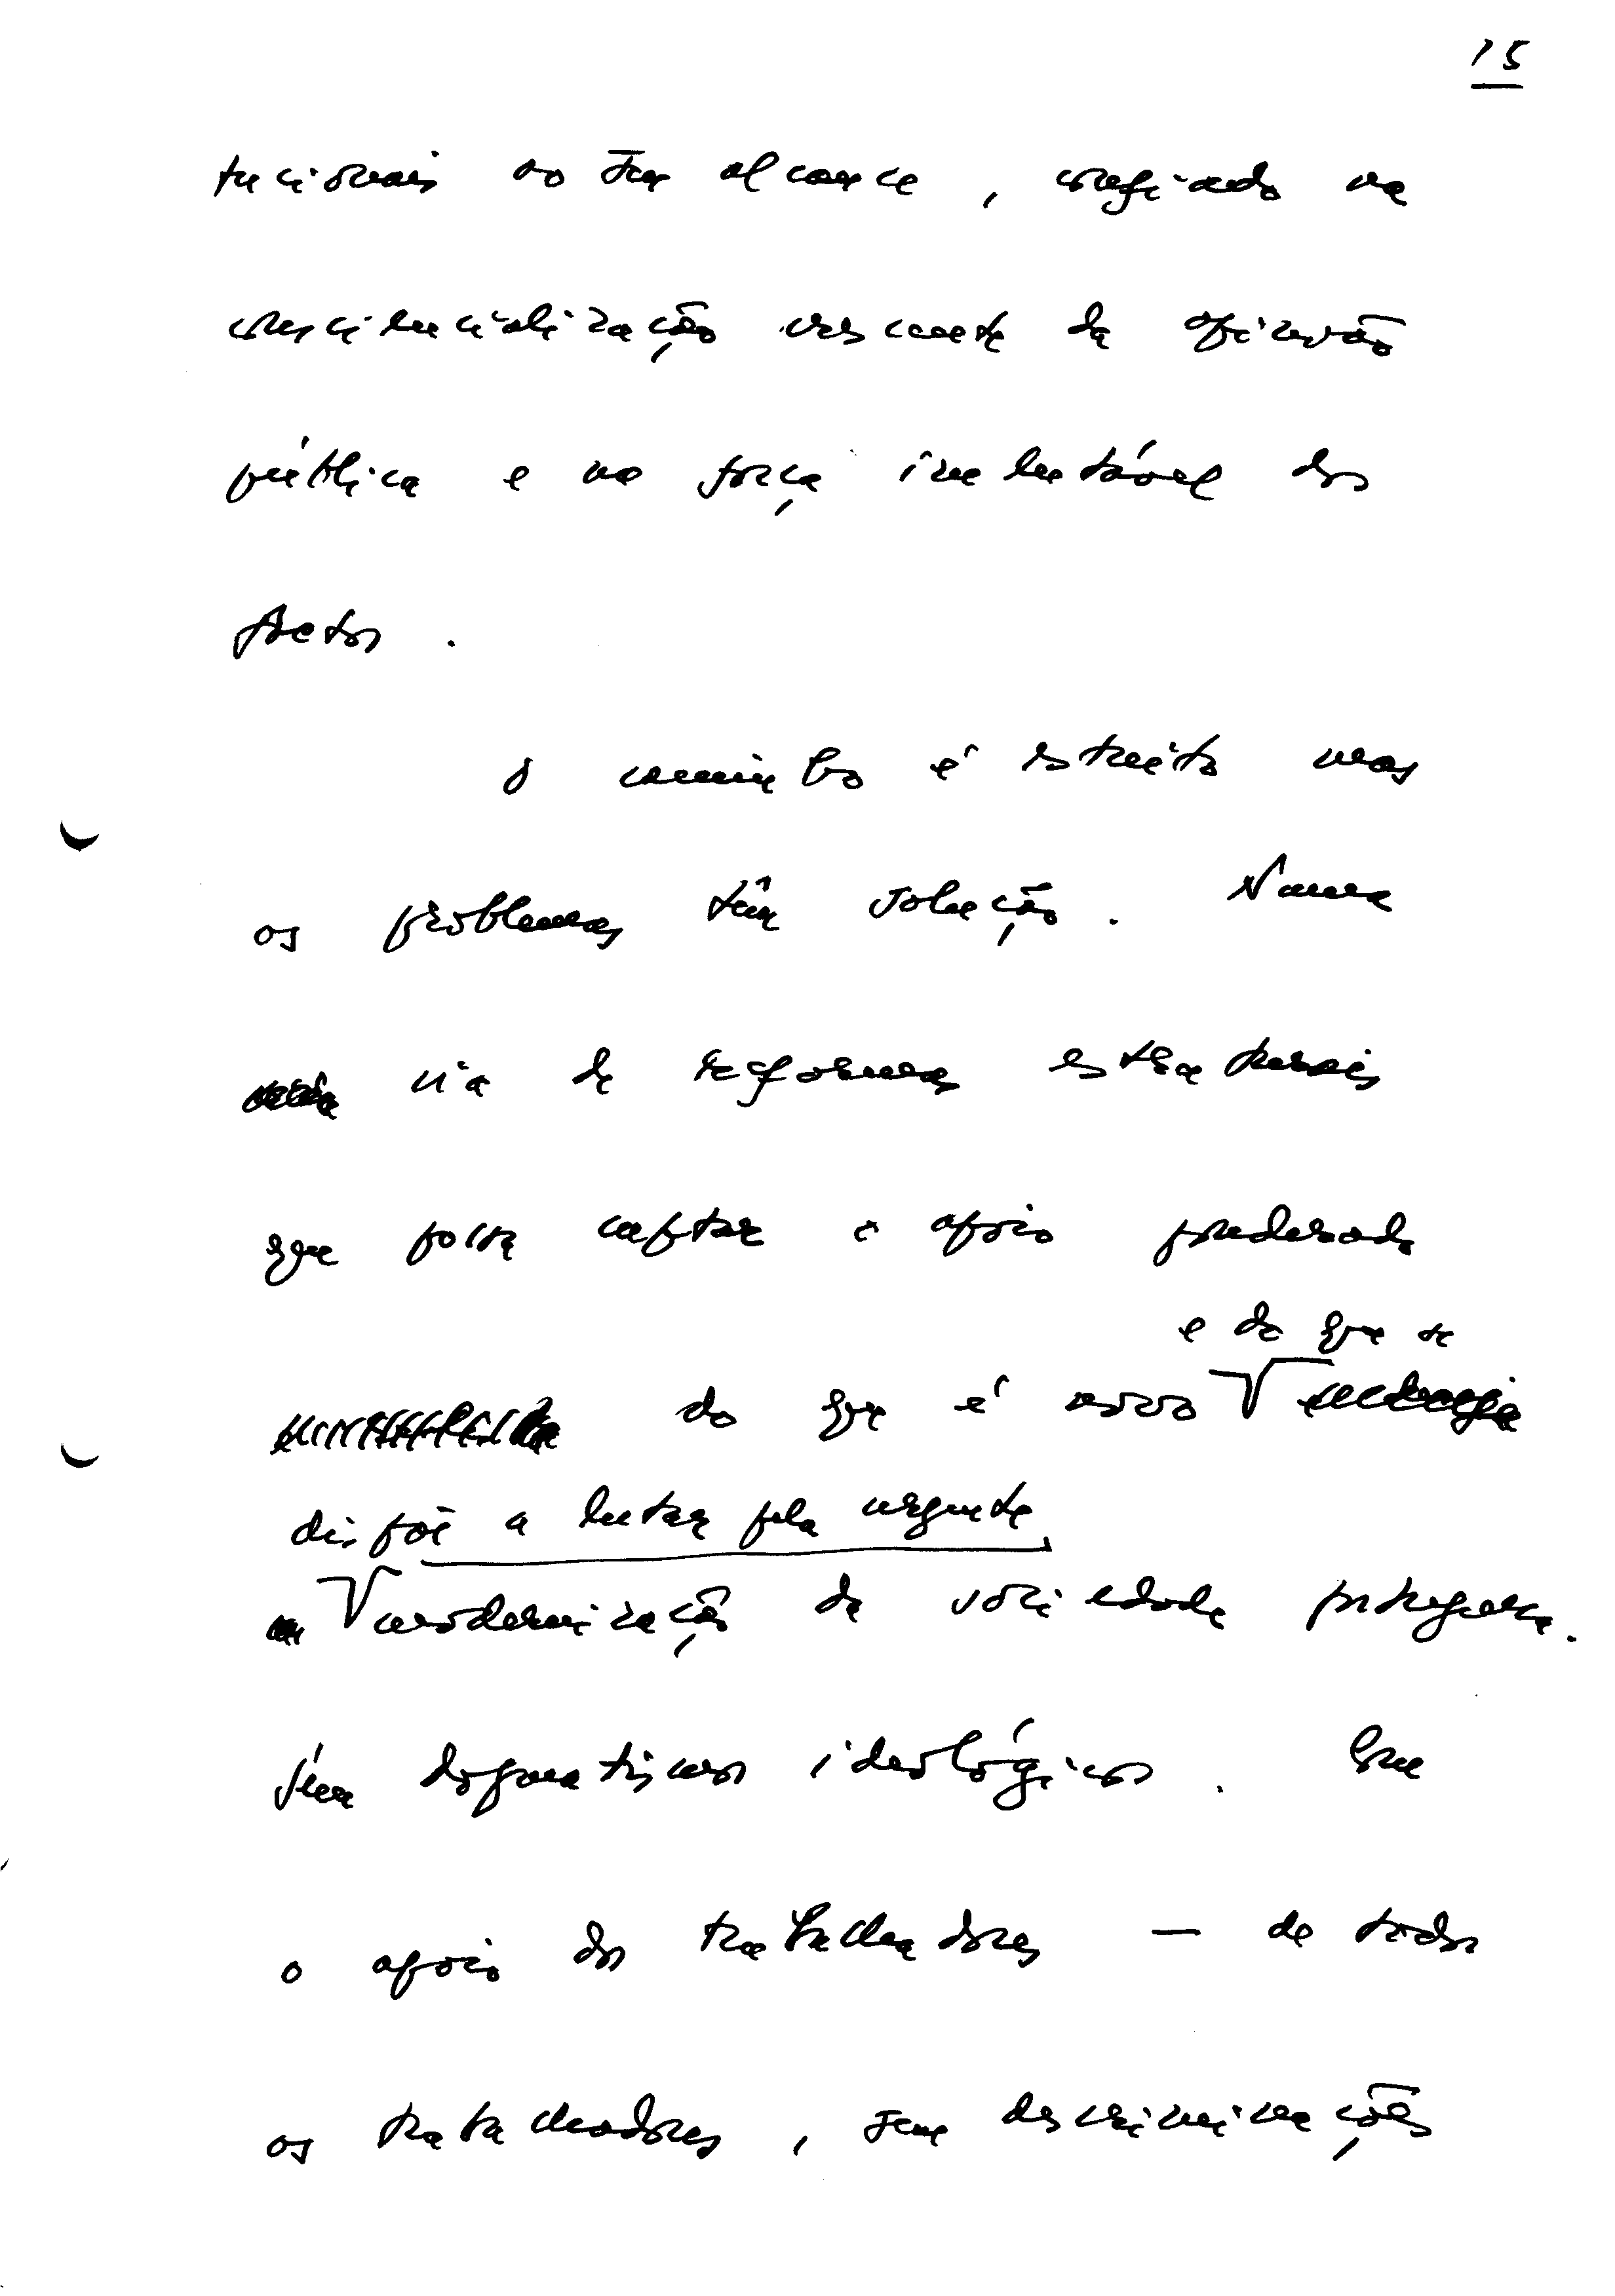 15
tucionais ao seu alcance, confiado na
consciencialização crescente da opinião
pública e na força inelutável dos
factos.
O caminho é estreito mas
os problemas têm solução. Numa
via de reformas estruturais
que possa captar o apoio ponderado
e do que se
do que é novo
dispõe a lutar pela urgente
modernização da sociedade portuguesa.
Sem dogmatismos ideológicos. Com
o apoio dos trabalhadores — de todos
os trabalhadores, sem descriminações